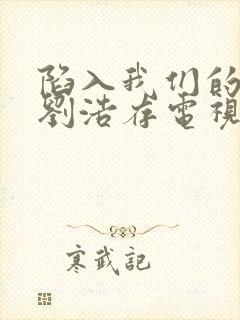 陷入我们的
劉浩存電視
寒武記